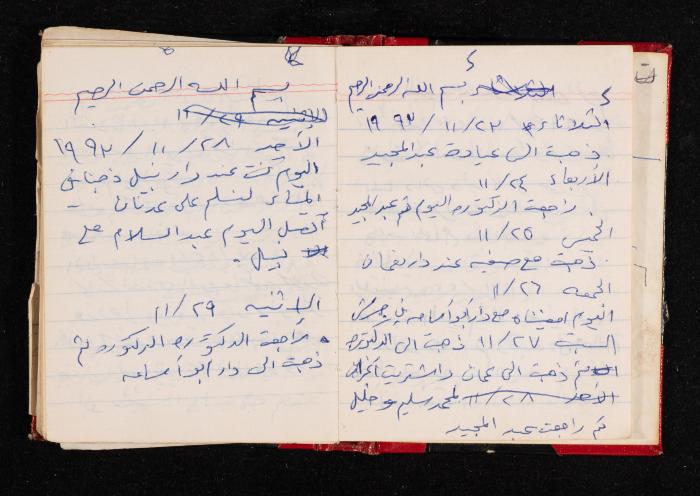 بسم الله الرحمن الرحيم
الثلاثاء ٢٣ / ١١ / ١٩٩٣
ذهبت الى عيادة عبد المجيد
الأربعاء ٢٤ / ١١
راجعت الدكتوره اليوم ثم عبد المجيد
الخميس ٢٥ / ١١
ذهبت مع صفيه عند دار نعمان
الجمعه ٢٦ / ١١
اليوم امضيناه مع دار ابو أسامه في جرش
السبت ٢٧ / ١١ ذهبت الى الدكتوره
ثم ذهبت الى عمان واشتريت
الأحد ٢٨ / ١١ لمحمد سليم و خليل
ثم راجعت عبد المجيد
بسم الله الرحمن الرحيم
الاثنين ٢٩ / ١١
الأحد ٢٨ / ١١ / ١٩٩٣
اليوم كنت عند دار نبيل ذهبنا في
المساء لنسلم على عدنان
أتصل اليوم عبد السلام مع
نبيل .
الاثنين ٢٩ / ١١
راجعت الدكتوره الدكتوره ثم
ذهبت الى دار ابو أسامه